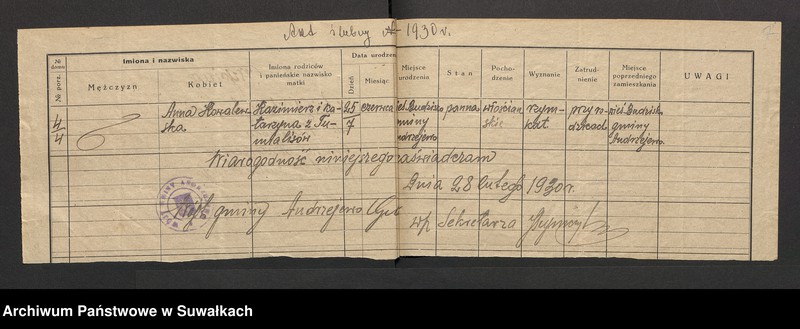 Akt ślubny 1930 r.
№ domu
№ porz.
Imiona i nazwiska
Mężczyzn
Kobiet
Imiona rodziców
i panieńskie nazwisko
matki
Data urodzen
Dzień
Miesiąc
Miejsce
urodzenia
Stan
Pocho-
dzenie
Wyznanie
Zatrud-
nienie
Miejsce
poprzedniego
zamieszkania
UWAGI
4/4
Anna Kowalew
ska
Kazimierz i Ka-
tarzyna z
25/7
czerwca
gminy
Andrzejewo
panna
włościań
skie
rzym-
kat
przy ro-
dzicach
gminy
Andrzejewo
Wiarogodność niniejszego zaświadczam
Dnia 28 lutego 1930 r.
Wójt gminy Andrzejewo
wz Sekretarza
Archiwum Państwowe w Suwałkach